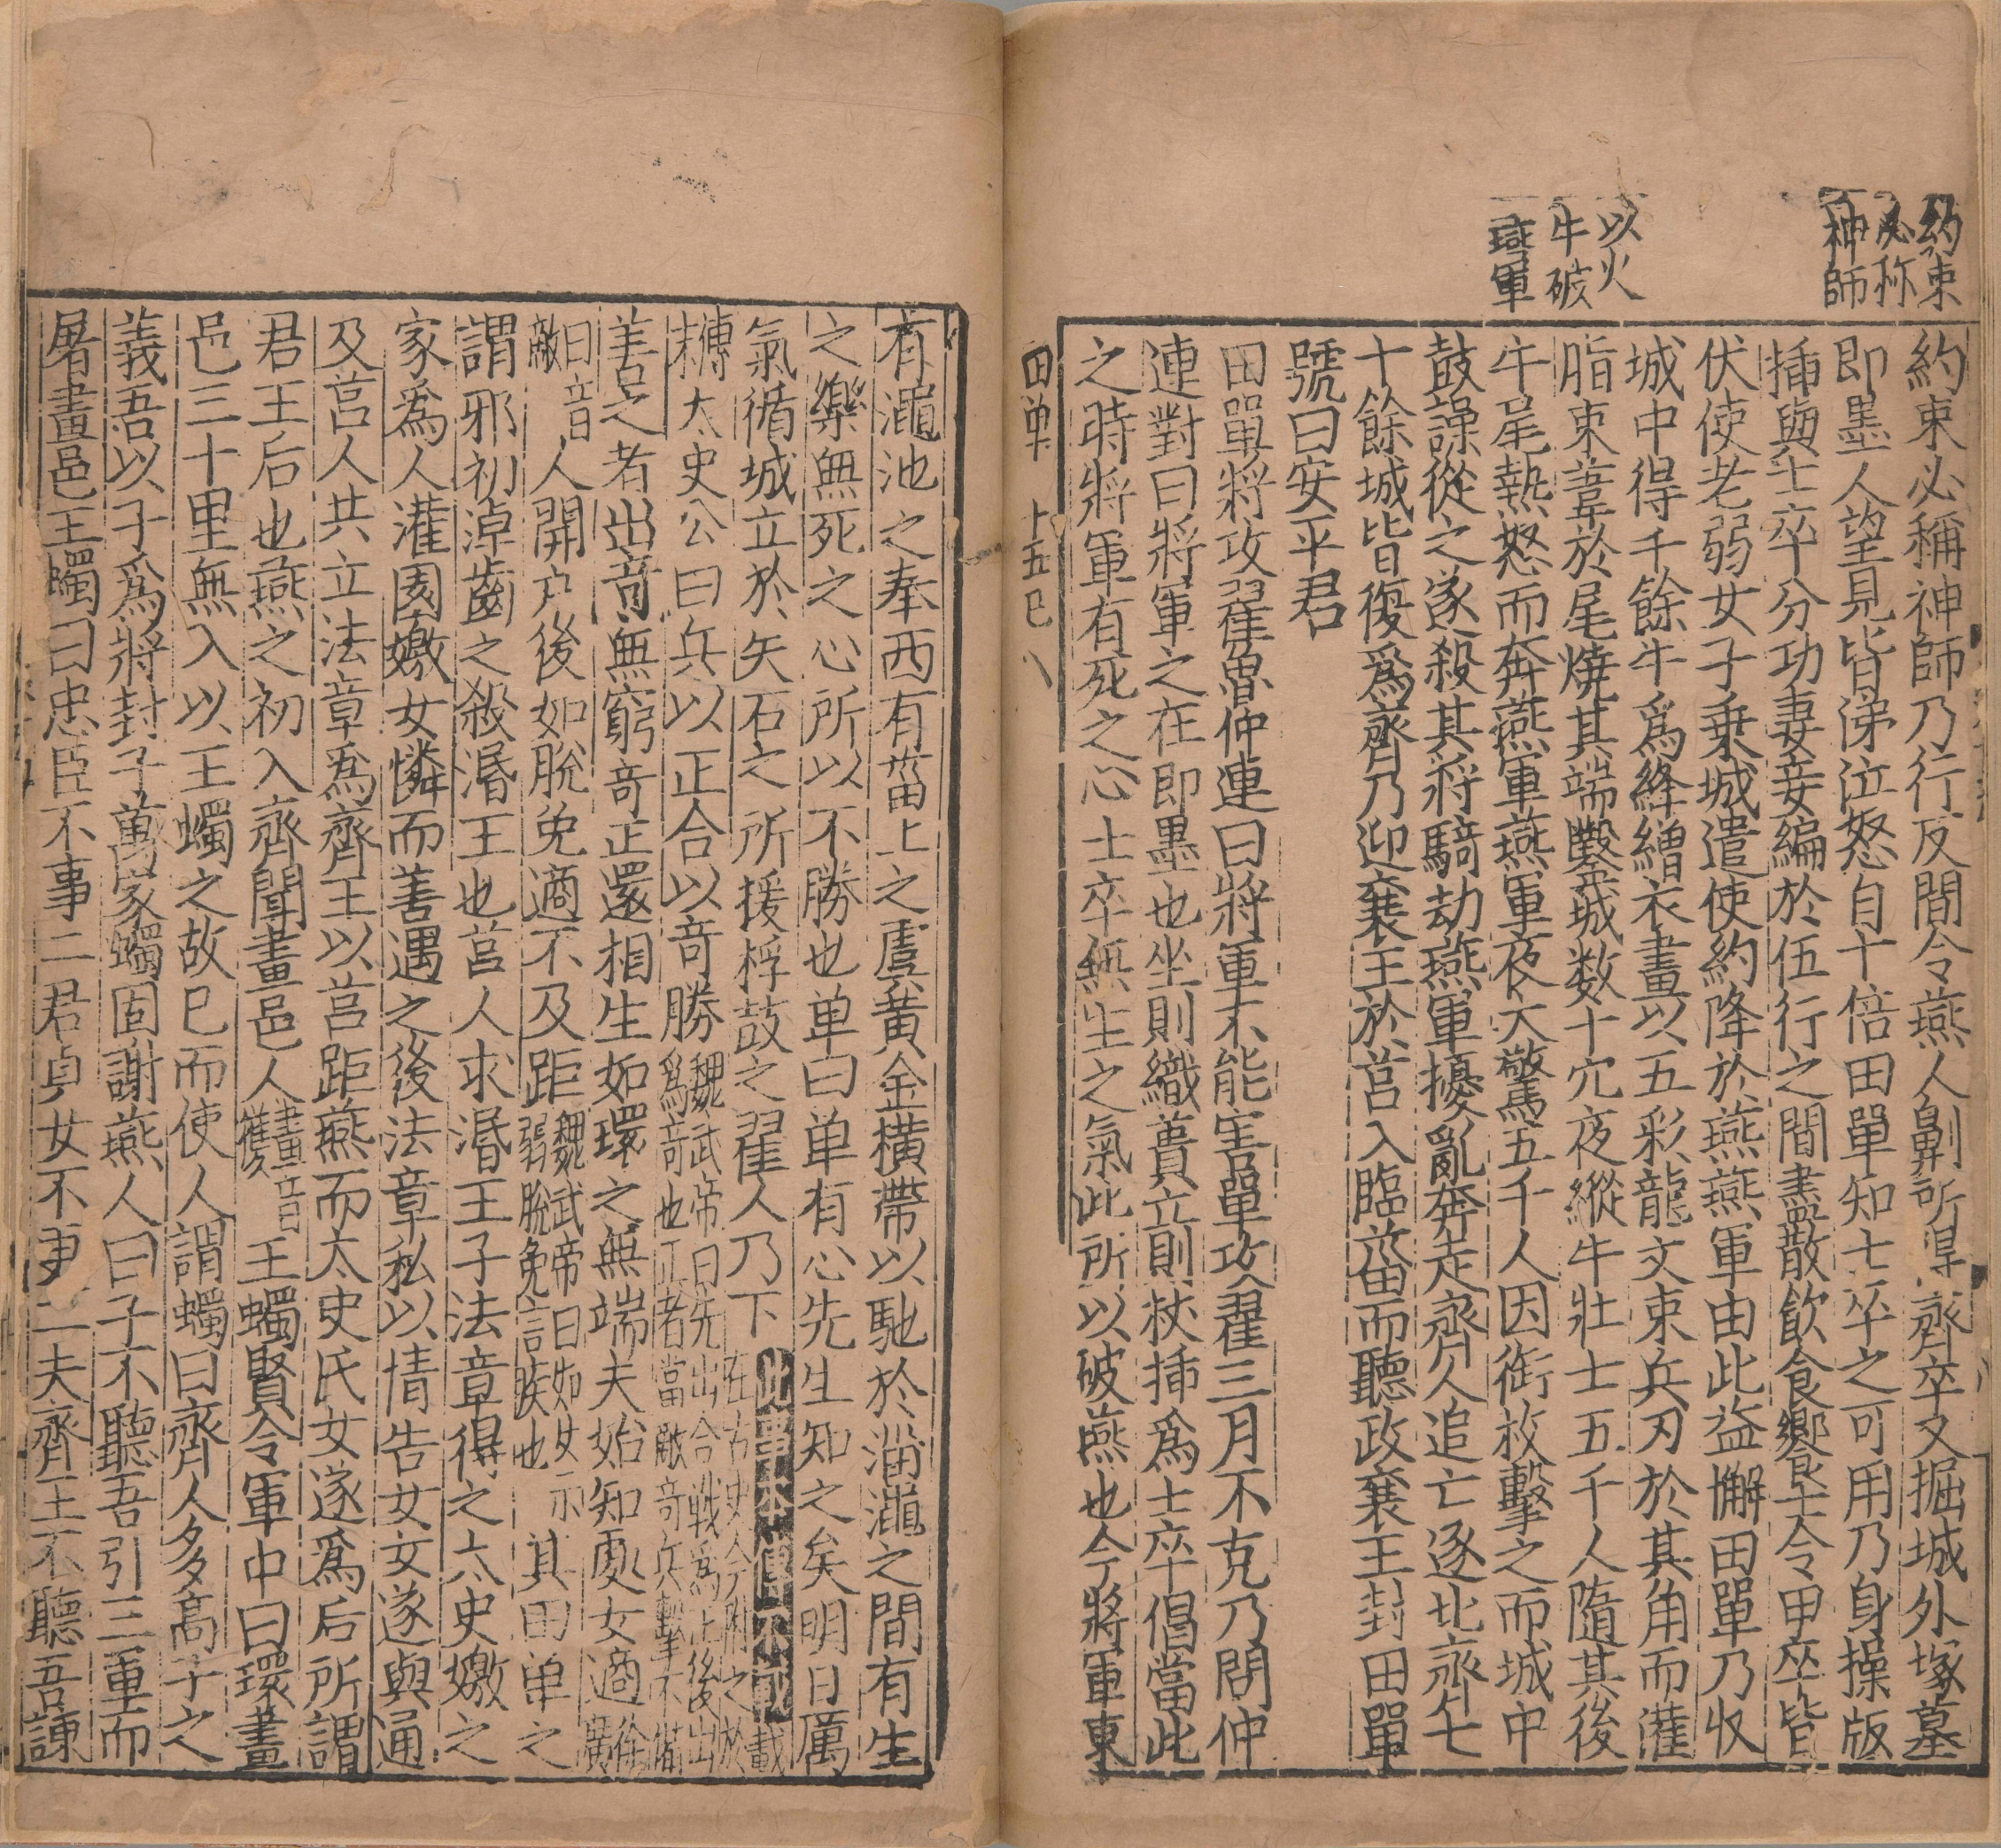 約束
必称
神師
以火
牛破
燕軍
約束必稱神師乃行反間令燕人劓所得齊卒又掘城外塚墓
即墨人望見皆涕泣怒自十倍田單知士卒之可用乃身操版
插與士卒分功妻妾編於伍行之間盡散飲食饗士令甲卒皆
伏使老弱女子乗城遣使約降於燕燕軍由此益懈田單乃收
城中得千餘牛爲絳繒衣畫以五彩龍文束兵刃於其角而灌
脂束葦於尾燒其端鑿城数十穴夜縱牛壯士五千人隨其後
牛尾熱怒而奔燕軍燕軍夜大驚五千人因銜枚擊之而城中
鼓譟從之遂殺其將騎劫燕軍擾亂奔走齊人追亡逐北齊七
十餘城皆復爲齊乃迎襄王於莒入臨菑而聽政襄王封田單
號曰安平君
田單將攻翟魯仲連曰將軍不能害單攻翟三月不克乃問仲
連對曰將軍之在即墨也坐則織蕢立則杖插爲士卒倡當此
之時將軍有死之心士卒無生之氣此所以破燕也今將軍東
田单 十五巳 八
有澠池之奉西有菑上之虞黄金横帶以馳於淄澠之間有生
之樂無死之心所以不勝也单曰单有心先生知之矣明日厲
氣循城立於矢石之所援桴鼓之翟人乃下此事本傳不載在古史今附之於
傳末太史公曰兵以正合以竒勝魏武帝曰先出合戰爲正後出爲竒也正者當敵竒兵擊不備
善之者出竒無窮竒正還相生如環之無端夫始如處女適徐廣
曰音敵人開户後如脫免適不及距魏武帝曰如女示弱脫免言疾也其田单之
謂邪初淖齒之殺湣王也莒人求湣王子法章得之太史嬓之
家爲人灌園嬓女憐而善遇之後法章私以情告女女遂與通
及莒人共立法章爲齊王以莒距燕而太史氏女遂爲后所謂
君王后也燕之初入齊聞畫邑人畫音獲王蠋賢令軍中曰環畫
邑三十里無入以王蠋之故已而使人謂蠋曰齊人多高子之
義吾以子爲將封子萬家蠋固謝燕人曰子不聽吾引三軍而
屠畫邑王蠋曰忠臣不事二君貞女不更二夫齊王不聽吾諫